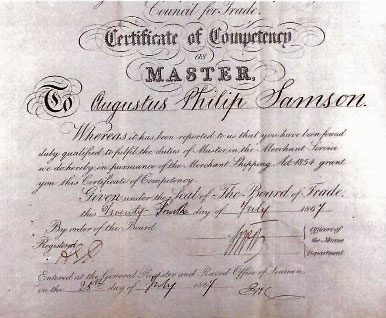 Council for Trade.
Certificate of Competency
as
MASTER,
To Augustus Philip Samson.
Whereas it has been reported to us that you have been found
duly qualified to fulfil the duties of Master in the Merchant Service
we do hereby in pursuance of the Merchant Shipping Act 1854 grant
you this Certificate of Competency.
Given under the Seal of The Board of Trade
this Twenty day of July 1867
By order of the Board
Officers
of the Marine
Department.
Registered
Entered at the General Register and Record Office of Seamen
on the 25th day of July 1867